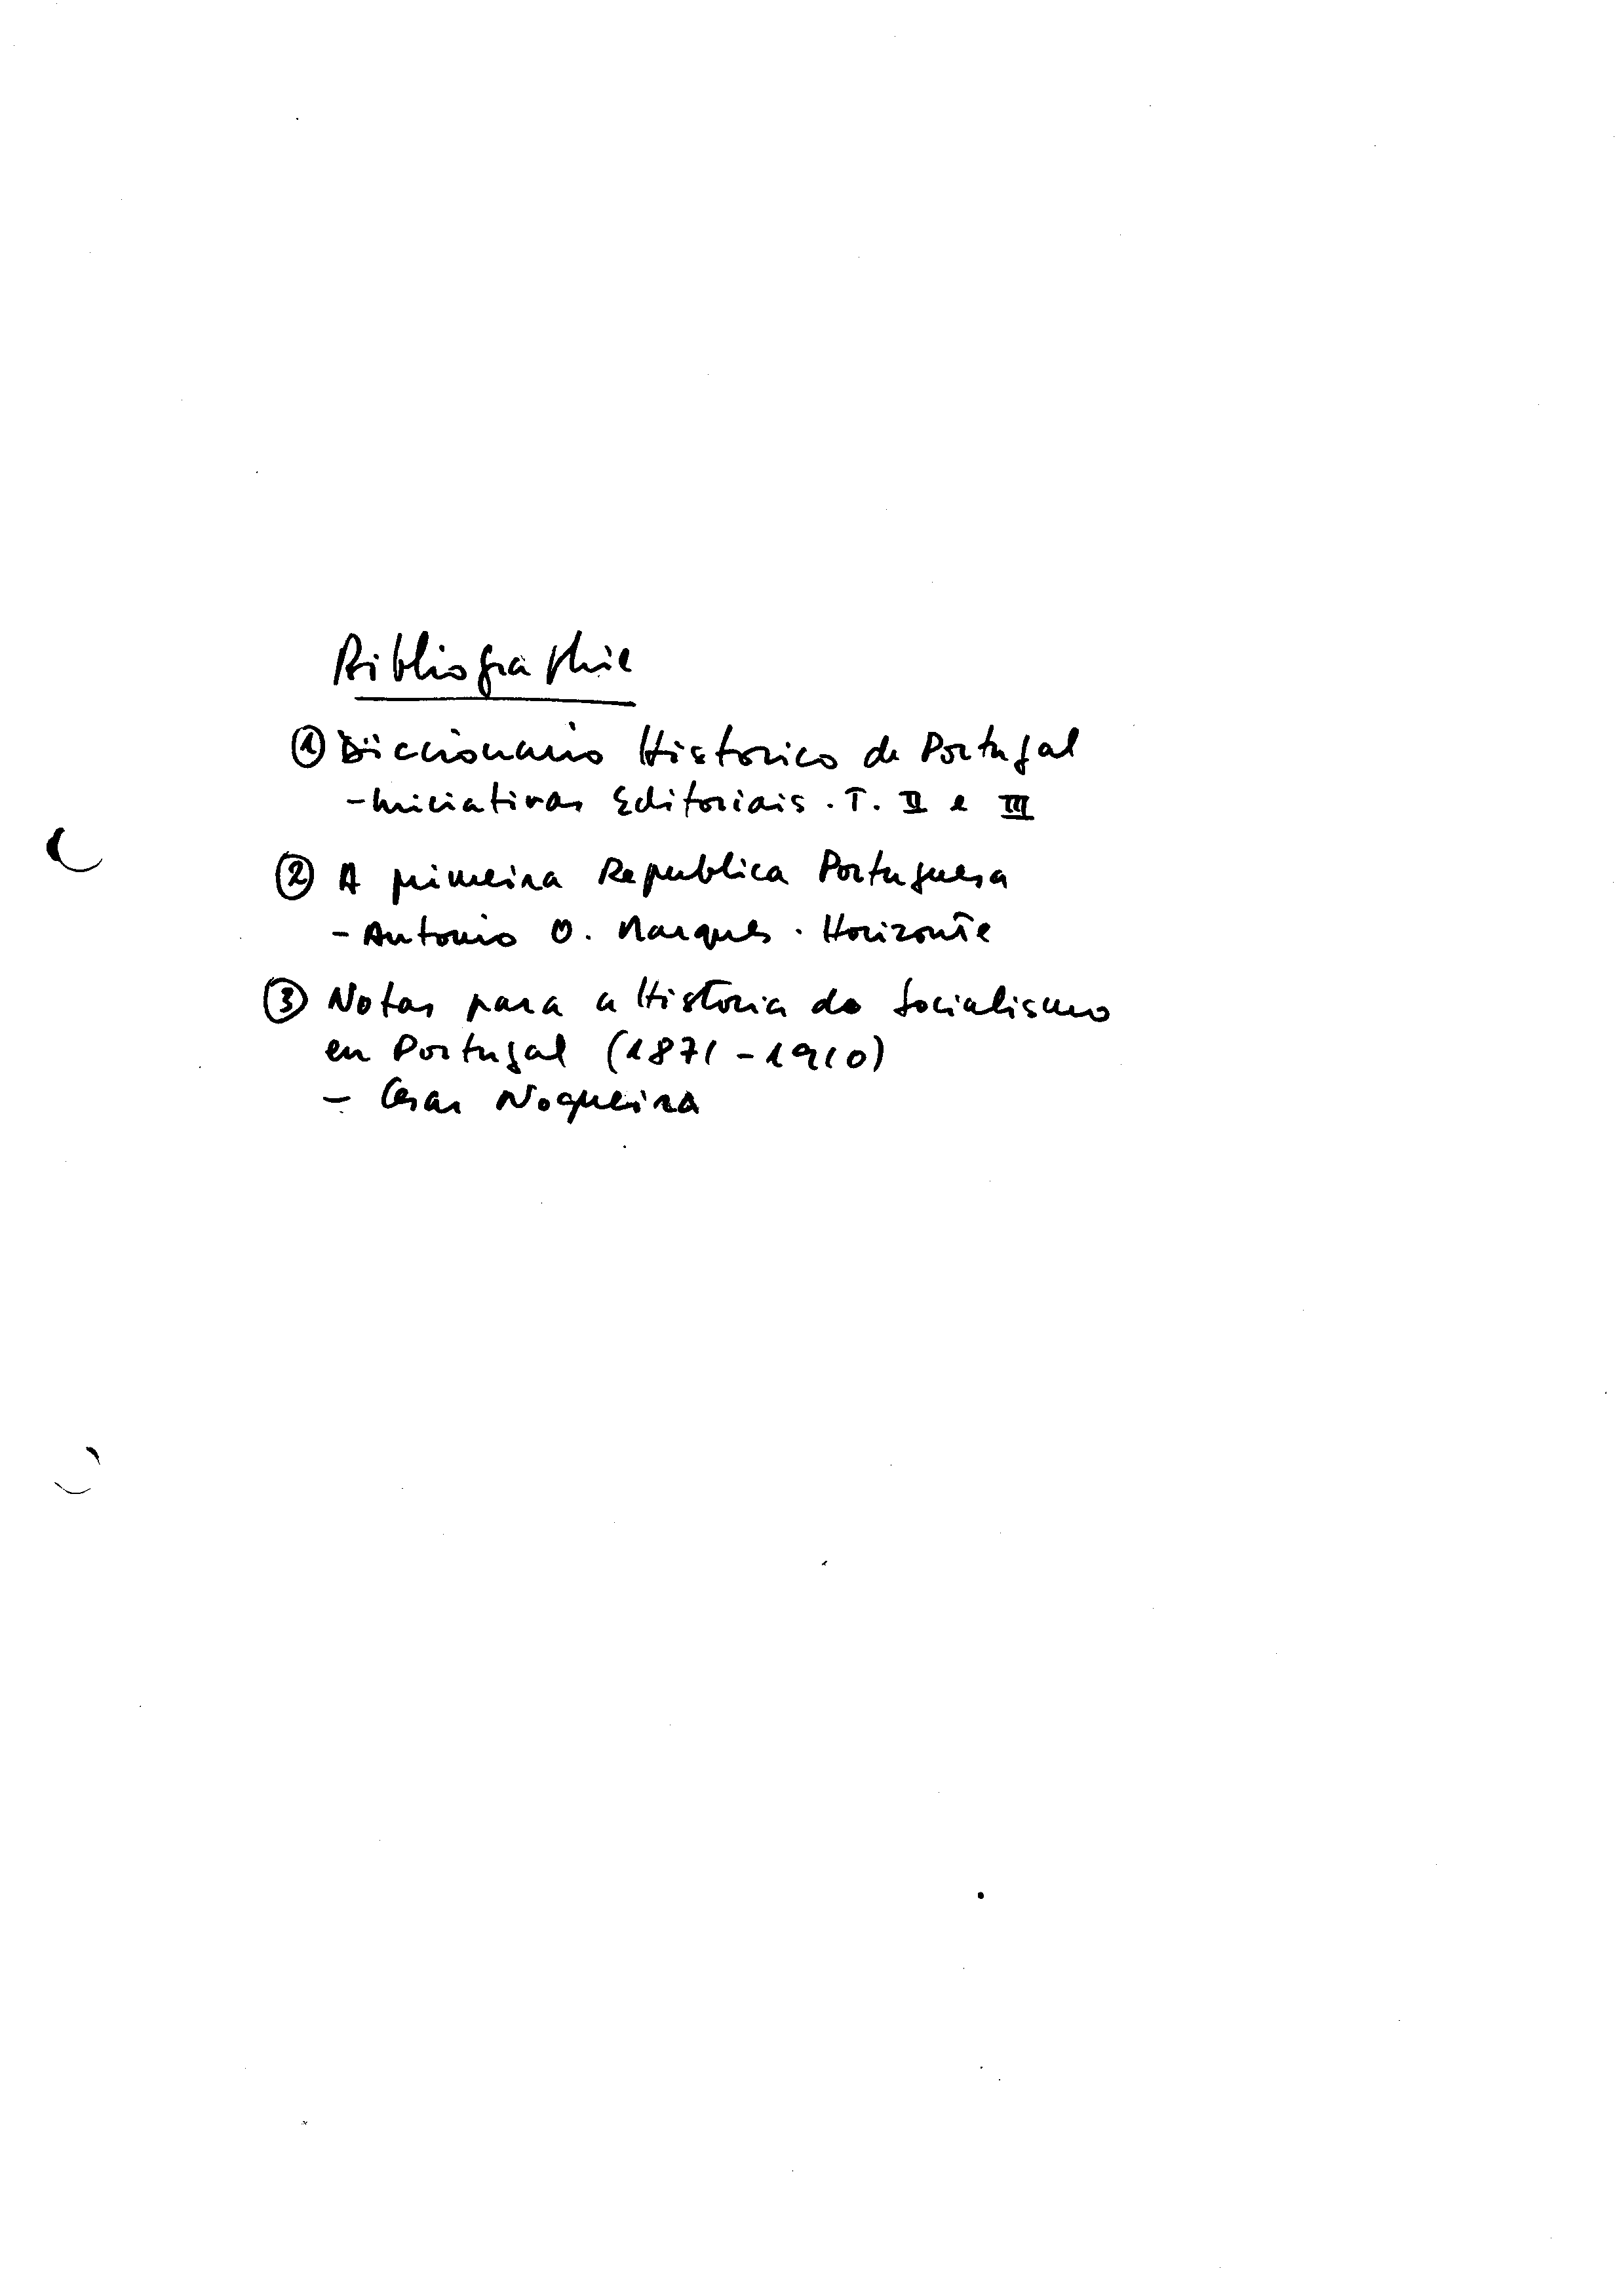 Bibliographie
① Diccionario Historico de Portugal
- Iniciativas Editoriais . T. II e III
② A primeira Republica Portuguesa
- Antonio O. Marques . Horizonte
③ Notas para a Historia do Socialismo
en Portugal (1871-1910)
- Cesar Noqueira